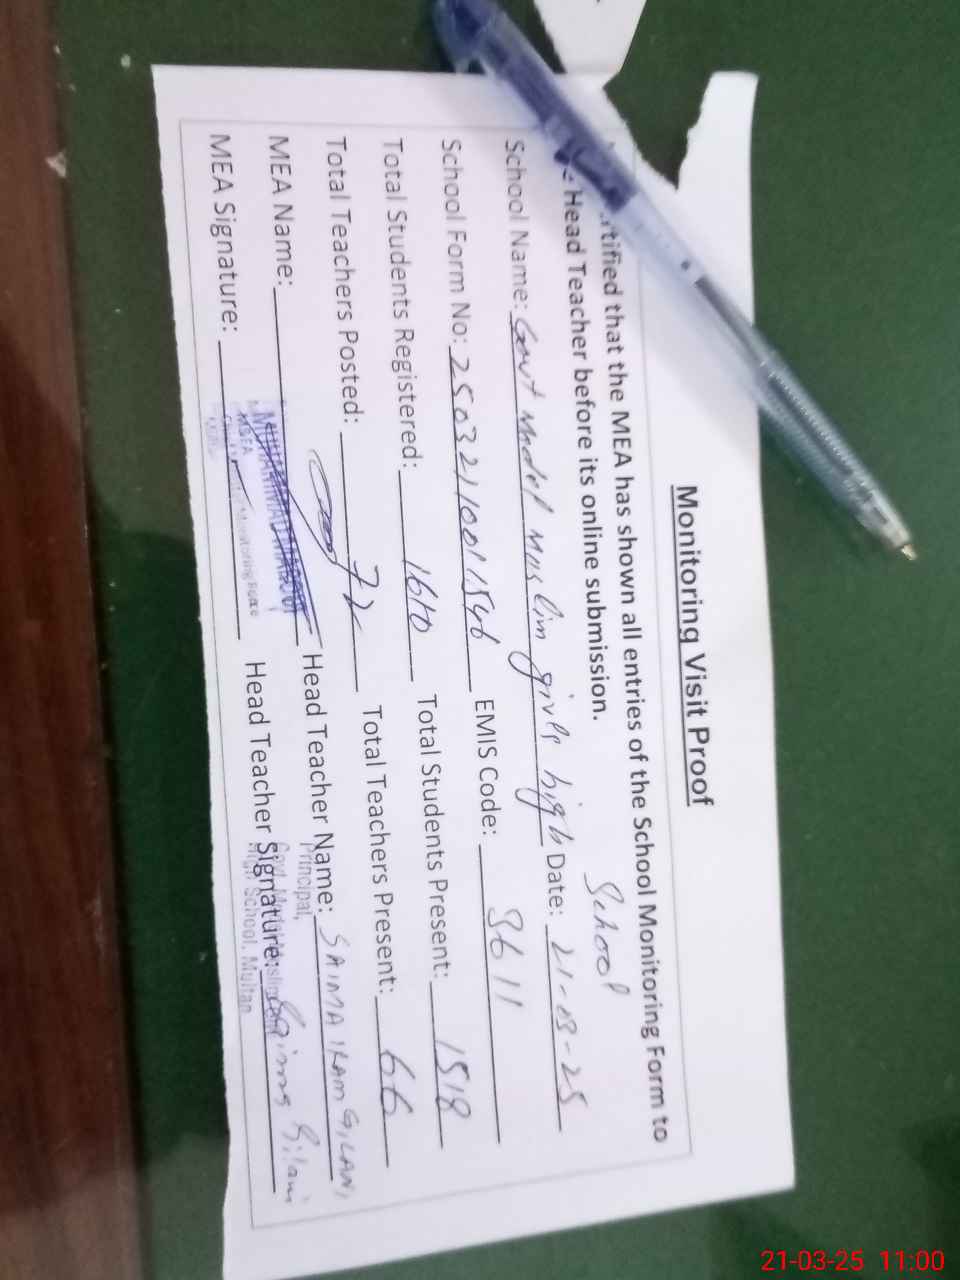 Monitoring Visit Proof
rtified that the MEA has shown all entries of the School Monitoring Form to
Head Teacher before its online submission.
School
School Name: Govt Model Muslim girls high Date: 21-03-25
School Form No: 2503211001546 EMIS Code: 3611
Total Students Registered: 1610 Total Students Present: 1518
Total Teachers Posted: 72 Total Teachers Present: 66
MEA Name: Head Teacher Name: SAIMA IKAM GILANI
Principal,
MEA Signature: Head Teacher Signature: Saima Gilani
High School, Multan
21-03-25 11:00